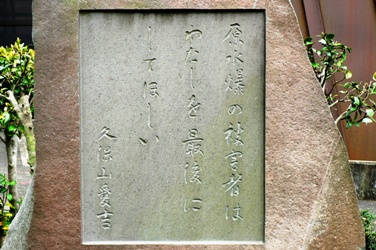 原水爆の被害者は
わたしを最後に
してほしい
久保山愛吉